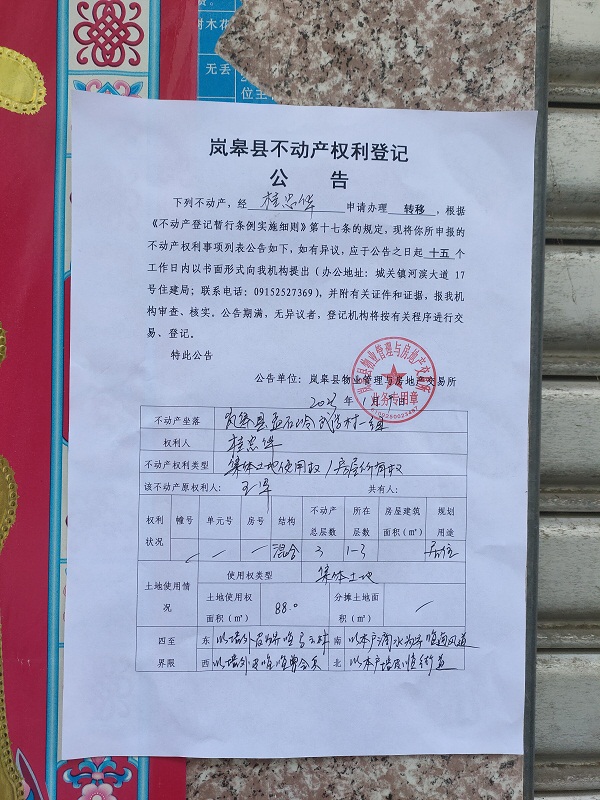 树木花
无丢
位主
岚皋县不动产权利登记
公 告
下列不动产，经 桂忠保 申请办理 转移 ，根据
《不动产登记暂行条例实施细则》第十七条的规定，现将你所申报的
不动产权利事项列表公告如下，如有异议，应于公告之日起 十五 个
工作日内以书面形式向我机构提出（办公地址：城关镇河滨大道 17
号住建局；联系电话：09152527369），并附有关证件和证据，报我机
构审查、核实。公告期满，无异议者，登记机构将按有关程序进行交
易、登记。
特此公告
公告单位：岚皋县物业管理与房地产交易所
年 1 月 日
岚皋县物业管理与房地产交易所
业务专用章
不动产坐落 岚皋县孟石岭 村一组
权利人 桂忠保
不动产权利类型 集体土地使用权/房屋所有权
该不动产原权利人： 共有人：
权利状况 幢号 单元号 房号 结构 不动产总层数 所在层数 房屋建筑面积（㎡） 规划用途
/ — / 混合 3 1-3 居住
土地使用情况 使用权类型 集体土地
土地使用权面积（㎡） 88.0 分摊土地面积（㎡） /
四至界限 东 以墙外 南 以本户滴水为界
西 以墙外 北 以本户墙